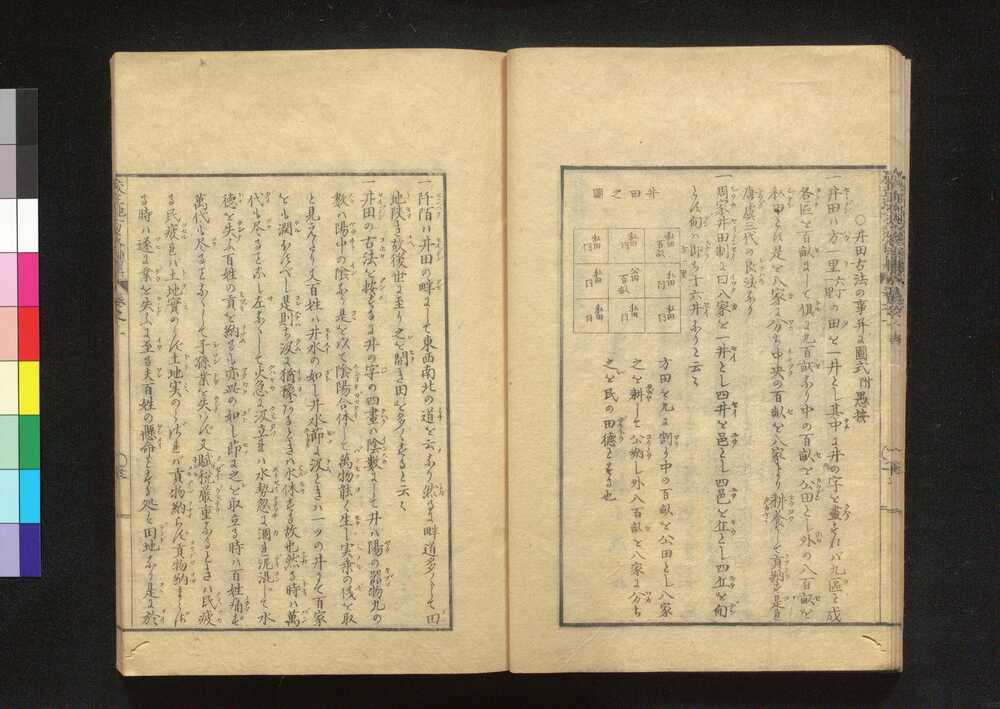 ○井田古法の事并ニ圖式附愚按
一井田ハ方一里六丁一里の田を一井とし其中に井の字を畫すれバ九區と成
各區を百畝にして俱に九百畝あり中の百畝を公田とし外の八百畝を
私田とし是を八家に分ち中央の百畝を八家より耕養して貢納す是を
唐虞三代の良法なり
一周家井田制に曰八家を一井とし四井を邑とし四邑を丘とし四丘を甸
とす甸ハ即ち十六井なりと云々
井田之圖
私田 私田 私田百畝
私田 公田百畝 私田
私田 私田 私田
方田を九に割り中の百畝を公田とし八家
之を耕して公納し外八百畝を八家に分ち
之を民の田德とする也
一阡陌ハ井田の畔にして東西南北の道を云なり然るに畔道多くして田
地狹き故後世に至り之を開き田を多くすると云々
一井田の古法を按るに井の字の四畫ハ陰數にして井ハ陽の器物九の
數ハ陽中の陰なり是を以て陰陽合体して萬物能く生し実乗の伐を取
と見えたり又百姓ハ井水の如し井水節に汲ときハ一ツの井にて百家
をも潤すべし是則ち汲に猶稼なるときハ水休する故也然る時ハ萬
代も尽る事なし左なくして火急に汲立れハ水勢忽に涸れ泥混して水
德を失ふ百姓の貢を納るも亦此の如し節に之を取立る時ハ百姓痛ず
萬代も尽る事なくして子孫業を失ハず又賦税嚴重なるときハ民疲
る民疲れハ土地實のらず土地実のらざれハ貢物納らず貢物納まらざ
る時ハ遂に業を失ふに至る夫百姓の懸命とする処ハ田地なり是に於